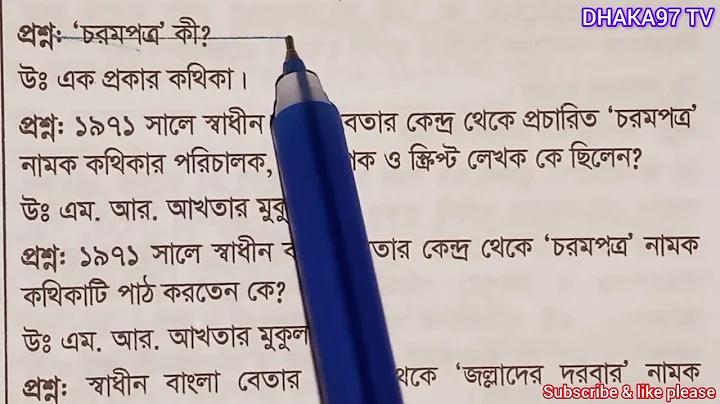 DHAKA97 TV
প্রশ্ন: ‘চরমপত্র’ কী?
উঃ এক প্রকার কথিকা।
প্রশ্ন: ১৯৭১ সালে স্বাধীন বেতার কেন্দ্র থেকে প্রচারিত ‘চরমপত্র’
নামক কথিকার পরিচালক, ও স্ক্রিপ্ট লেখক কে ছিলেন?
উঃ এম. আর. আখতার
প্রশ্ন: ১৯৭১ সালে স্বাধীন কেন্দ্র থেকে ‘চরমপত্র’ নামক
কথিকাটি পাঠ করতেন কে?
উঃ এম. আর. আখতার মুকুল
প্রশ্ন: স্বাধীন বাংলা বেতার থেকে ‘জল্লাদের দরবার’ নামক
Subscribe & like please